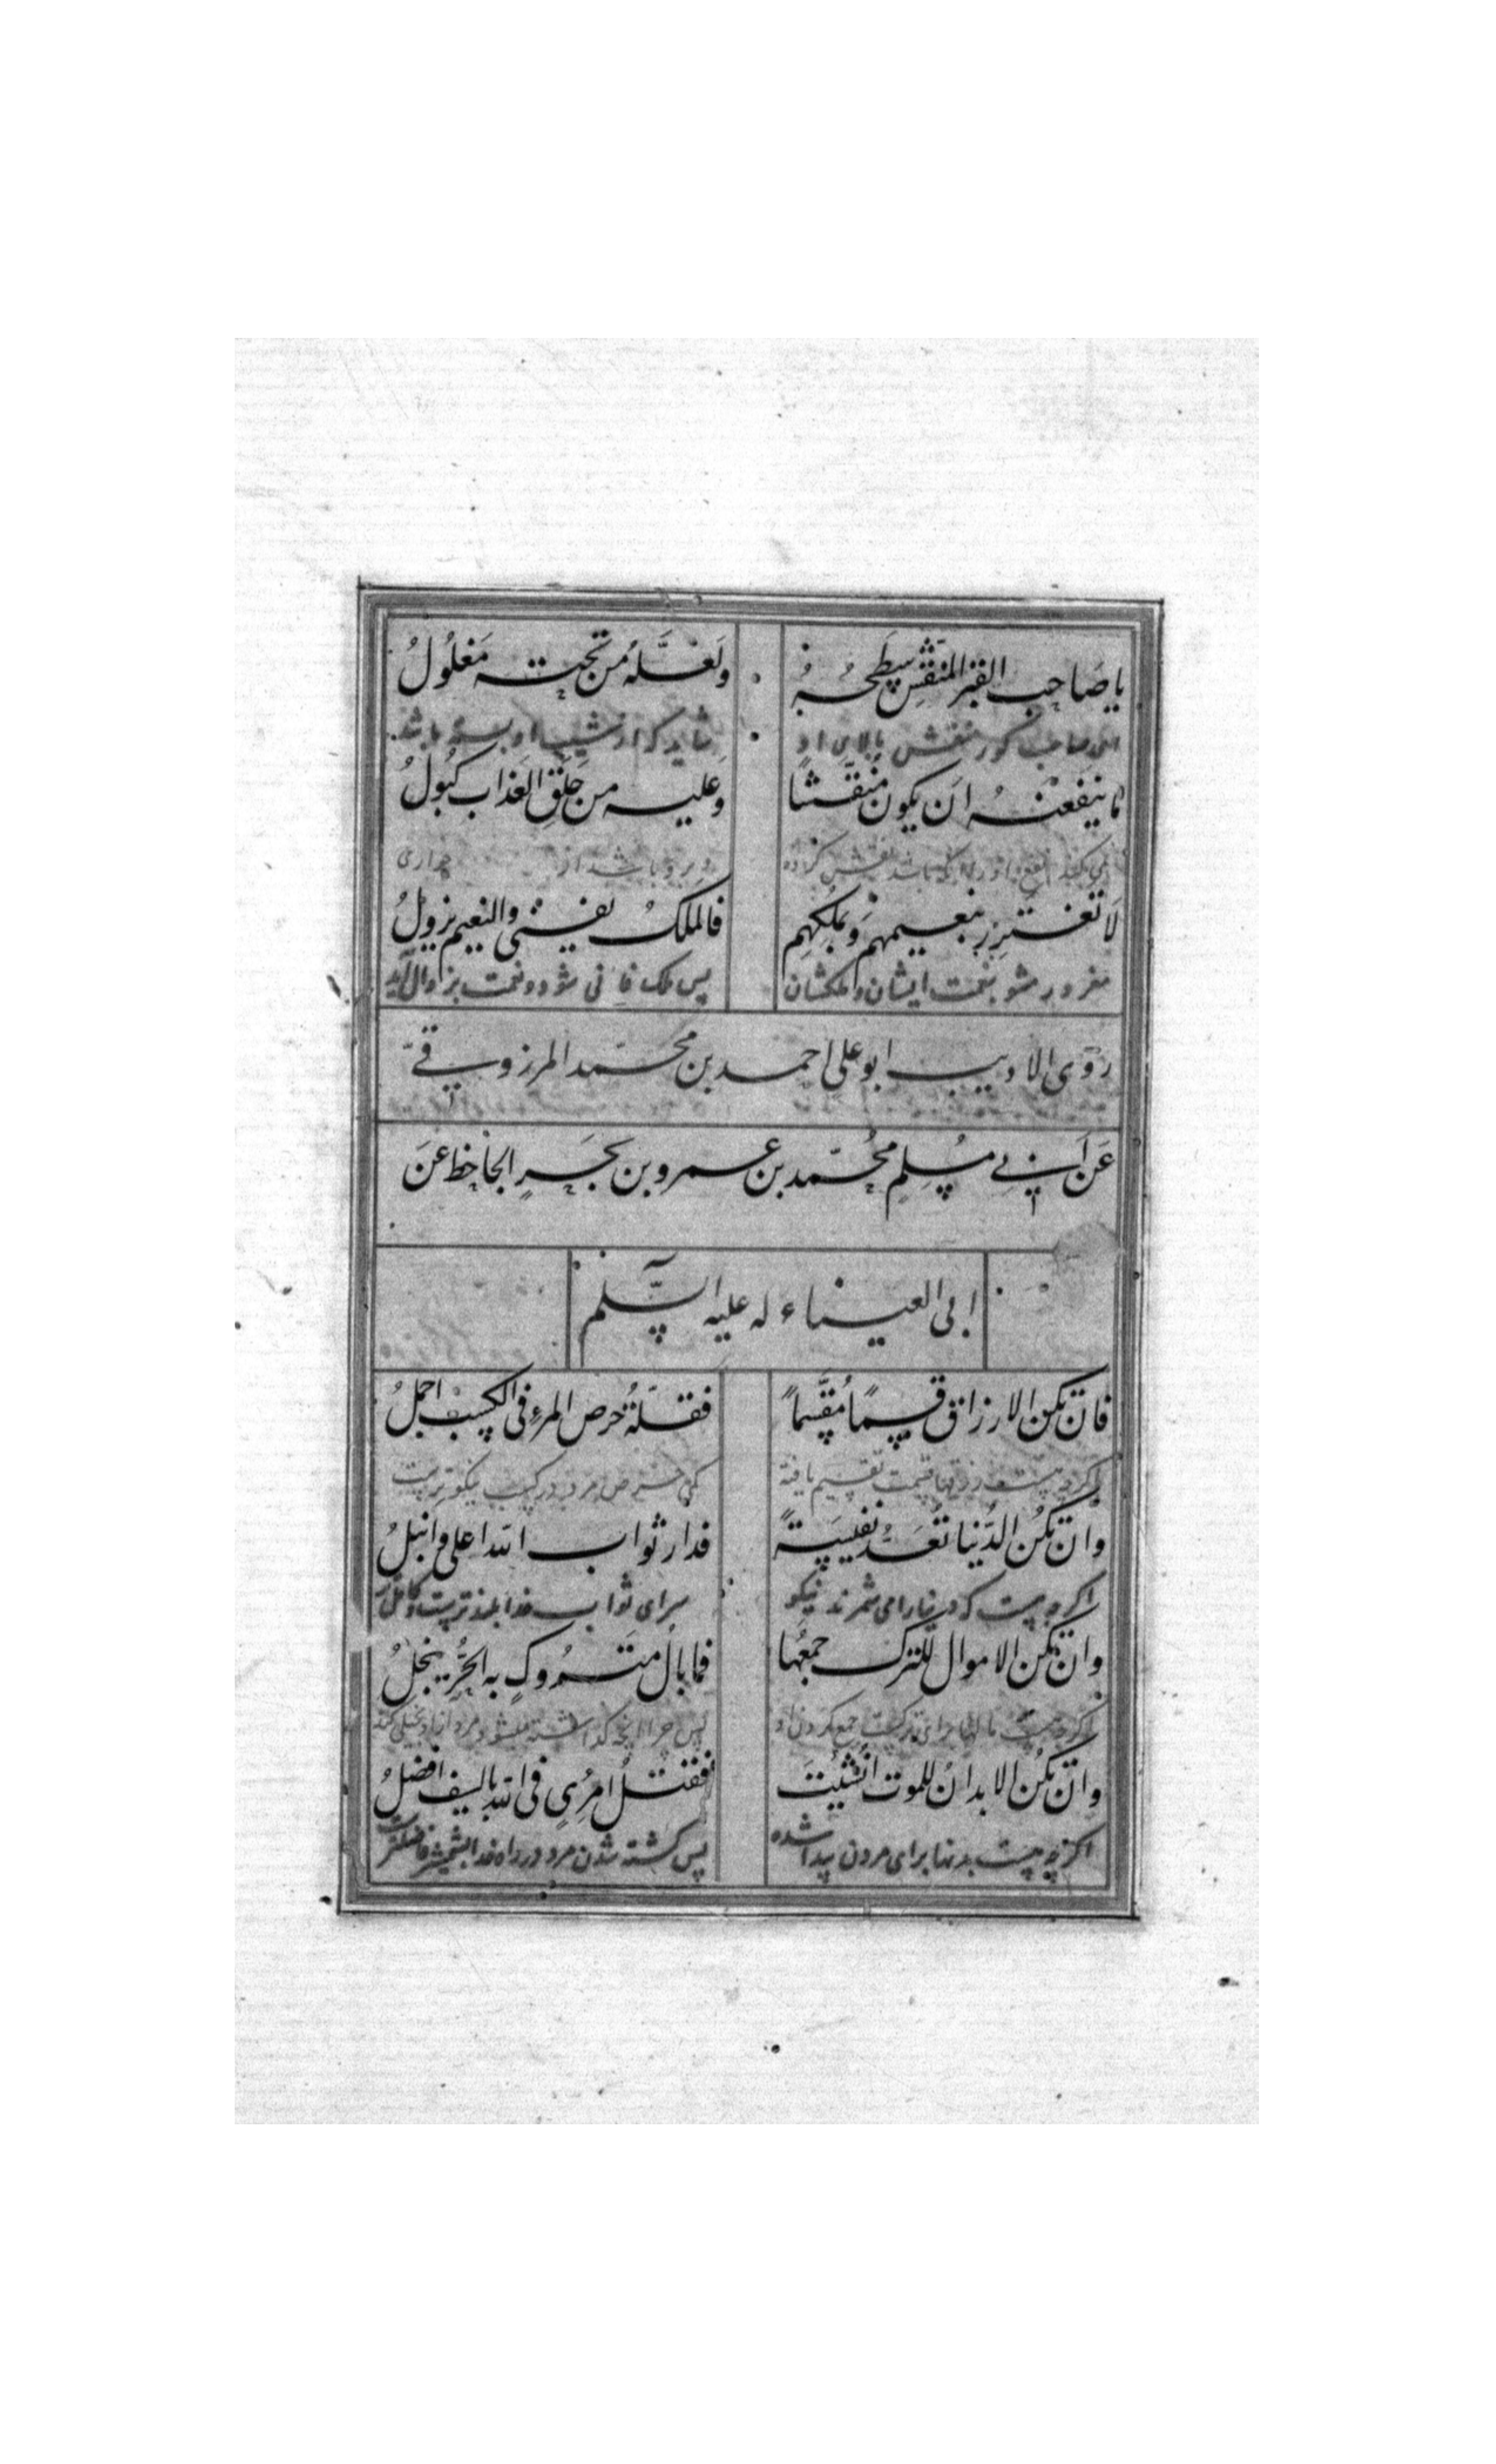 يا صاحب القبر المنقش سطحه
ولعله من تحته مغلول
ای صاحب کور منقش بالای او
شاید که از شیب او بسته باشد
ما ينفعنه ان يكون منقشا
وعليه من حلق العذاب كبول
و برو باشد از
لا تغترر بنعيمهم وبملكهم
فالملك يفنى والنعيم يزول
مغرور مشو بنعمت ایشان و ملکشان
پس ملک فانی شود و نعمت بزوال آید
روى الاديب ابو على احمد بن محمد المرزوقى
عن ابى مسلم محمد بن عمرو بن بحر الجاحظ عن
ابى العيناء له عليه السلم
فان تكن الارزاق قسما مقسما
فقلة حرص المرء فى الكسب اجمل
اکرچیست روزیها قسمت تقسیم یافته
کمی حرص مرد در کسب نیکوترست
وان تكن الدنيا تعد نفيسة
فدار ثواب الله اعلى وانبل
اکرچیست که دنیا را می شمرند نیکو
سرای ثواب خدا بلندترست و کاملتر
وان تكن الاموال للترك جمعها
فما بال متروك به الحر يبخل
اکرچیست مالها برای ترکست جمع کردن او
پس چرا آنچه کذاشته میشود مرد آزاد بخیلی کند
وان تكن الابدان للموت انشئت
فقتل امرئ فى الله بالسيف افضل
اکرچیست بدنها برای مردن پیدا شده
پس کشته شدن مرد در راه خدا بشمشیر فاضلترست